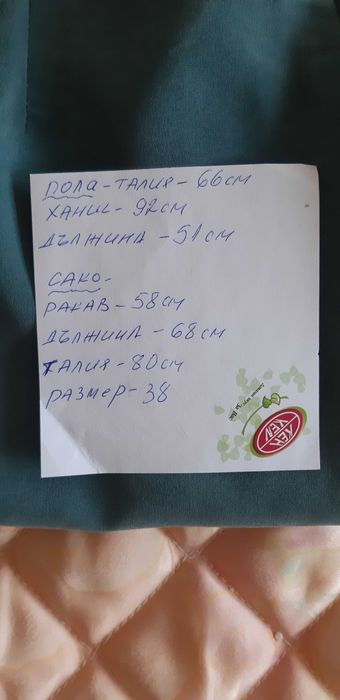 ПОЛА - ТАЛИЯ - 66см
ХАНШ - 92см
ДЪЛЖИНА - 51см
САКО -
РАКАВ - 58см
ДЪЛЖИНА - 68см
ТАЛИЯ - 80см
РАЗМЕР - 38